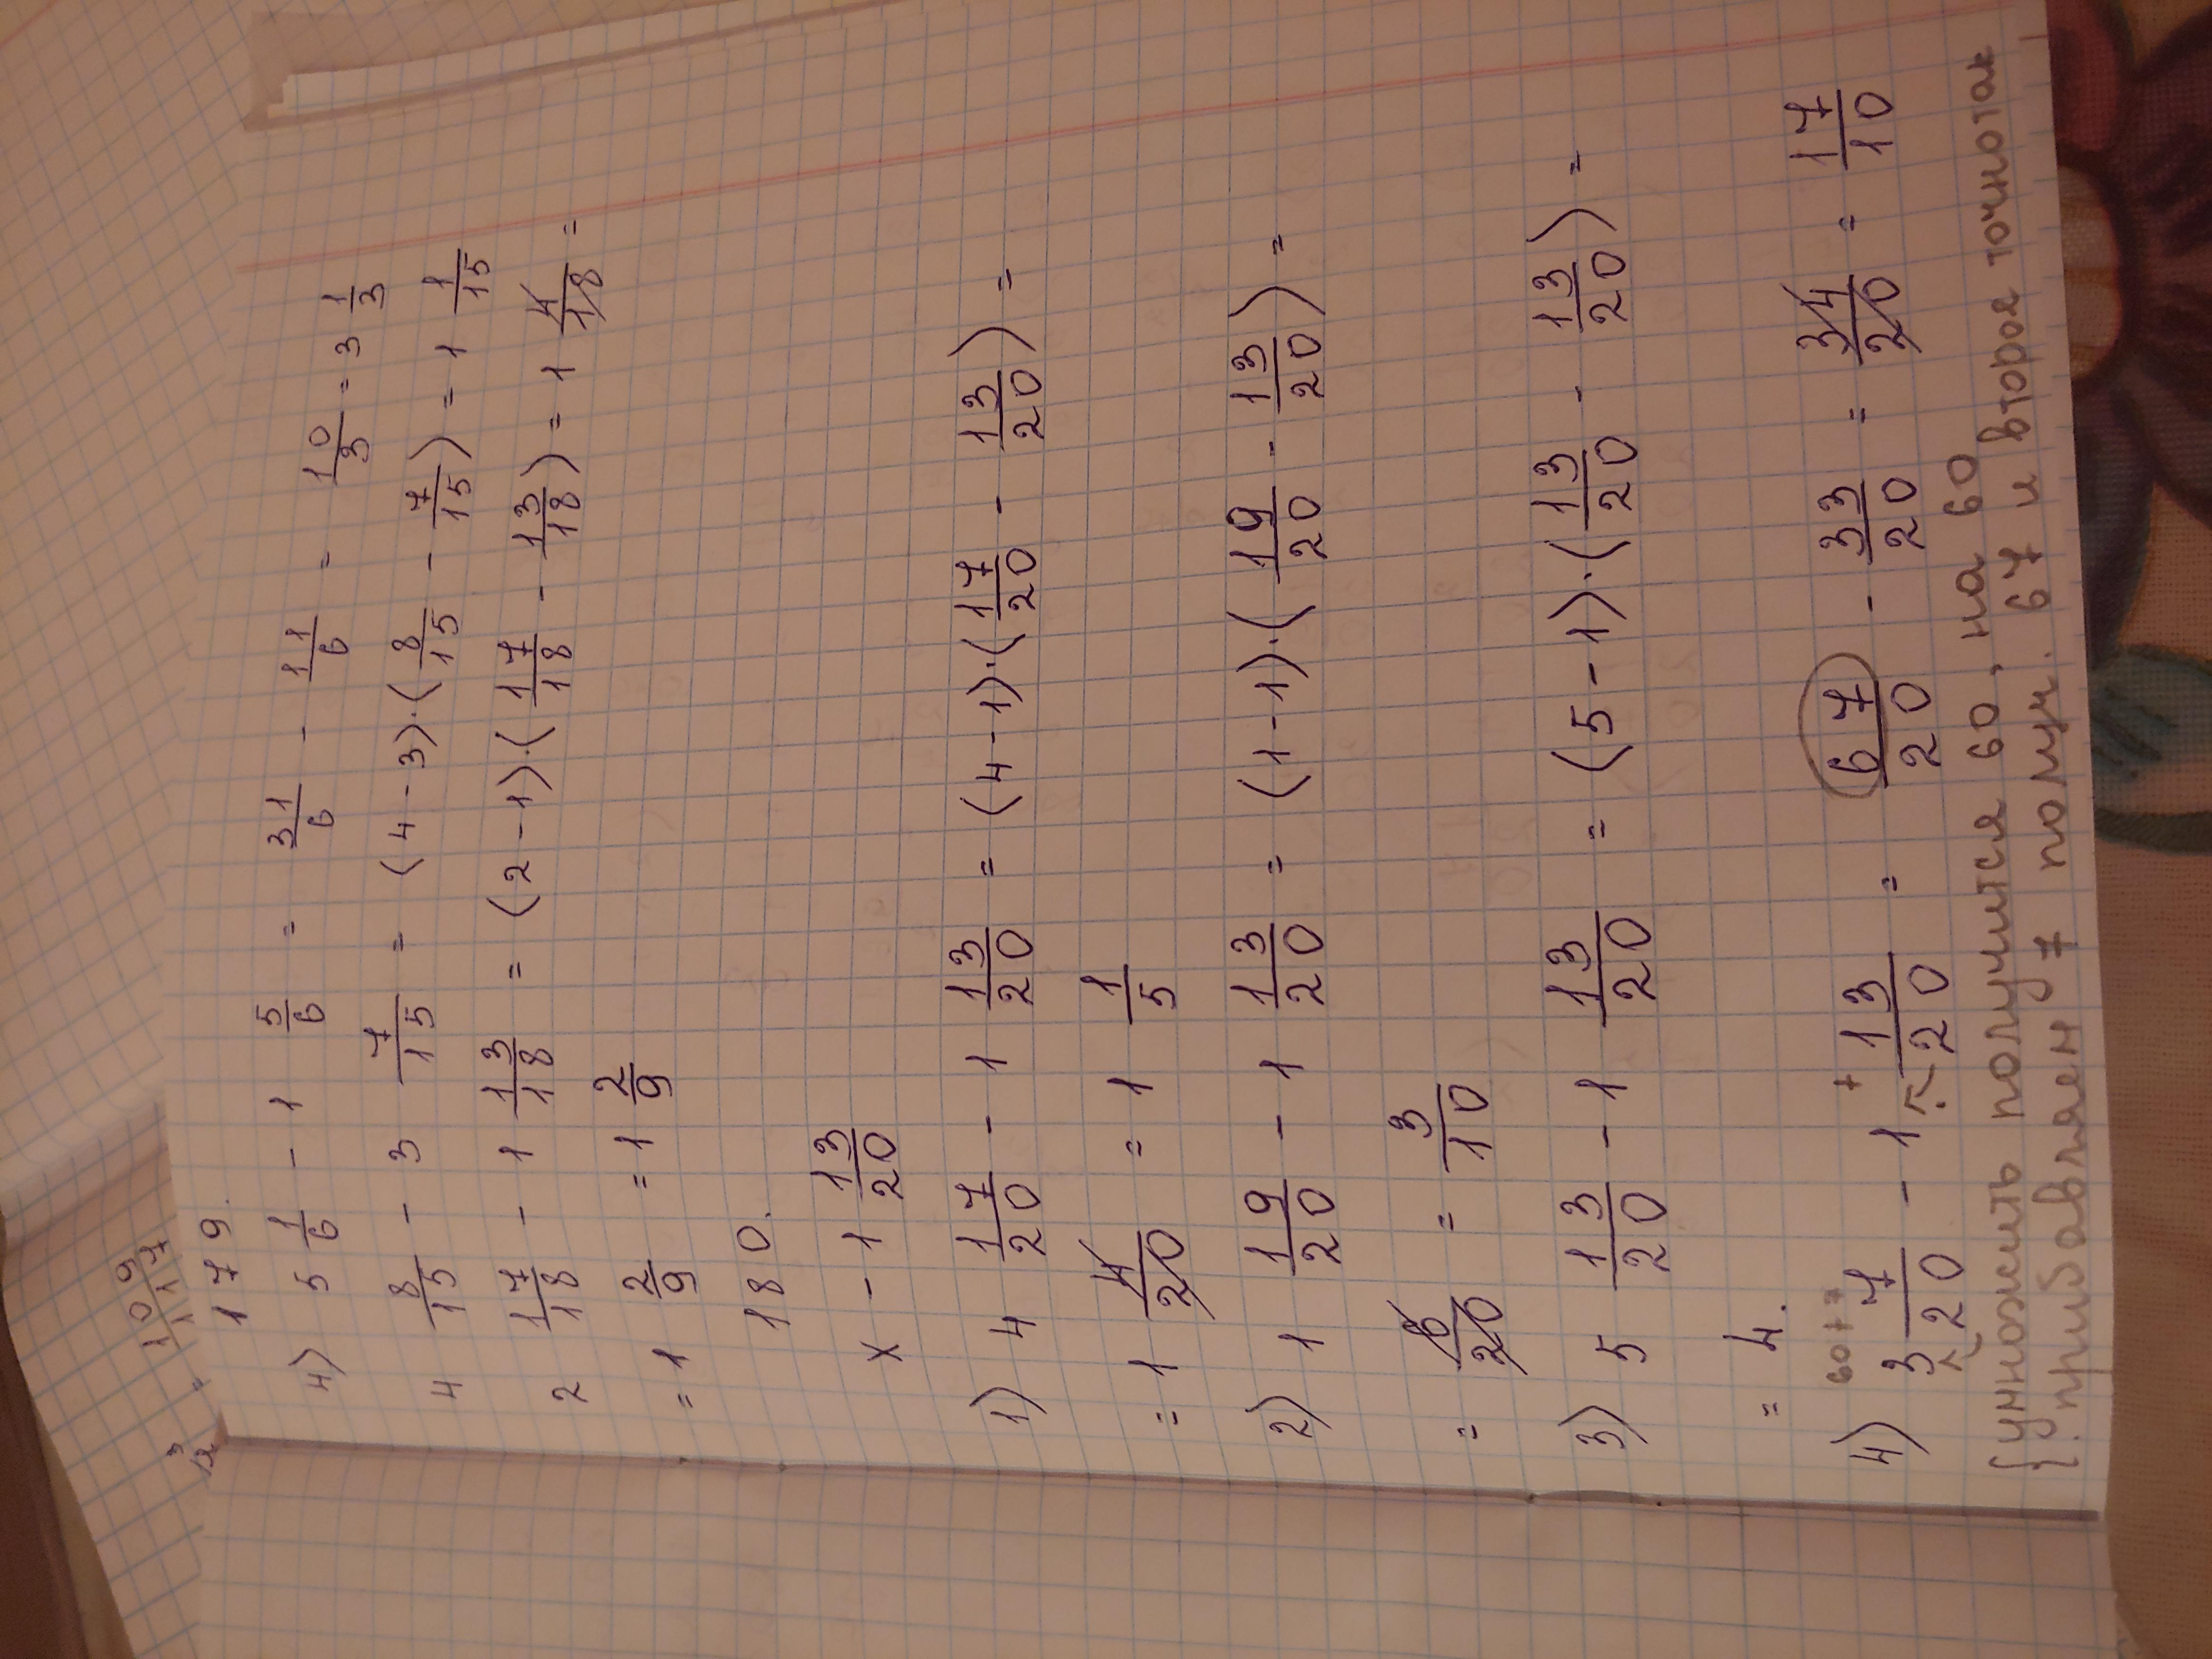 = 109/117
179.
4) 5 1/6 - 1 5/6 = 31/6 - 11/6 = 10/3 = 3 1/3
4 8/15 - 3 7/15 = (4-3)·(8/15 - 7/15) = 1 1/15
2 17/18 - 1 13/18 = (2-1)·(17/18 - 13/18) = 1 4/18 =
= 1 2/9 = 1 2/9
180.
x - 1 13/20
1) 4 17/20 - 1 13/20 = (4-1)·(17/20 - 13/20) =
= 1 4/20 = 1 1/5
2) 1 19/20 - 1 13/20 = (1-1)·(19/20 - 13/20) =
= 6/20 = 3/10
3) 5 13/20 - 1 13/20 = (5-1)·(13/20 - 13/20) =
= 4.
60+7
4) 3 7/20 - 1 + 13/20 = 67/20 - 33/20 = 34/20 = 17/10
{ умножить получится 60, на 60
прибавляем 7 получ. 67 и второе точно так